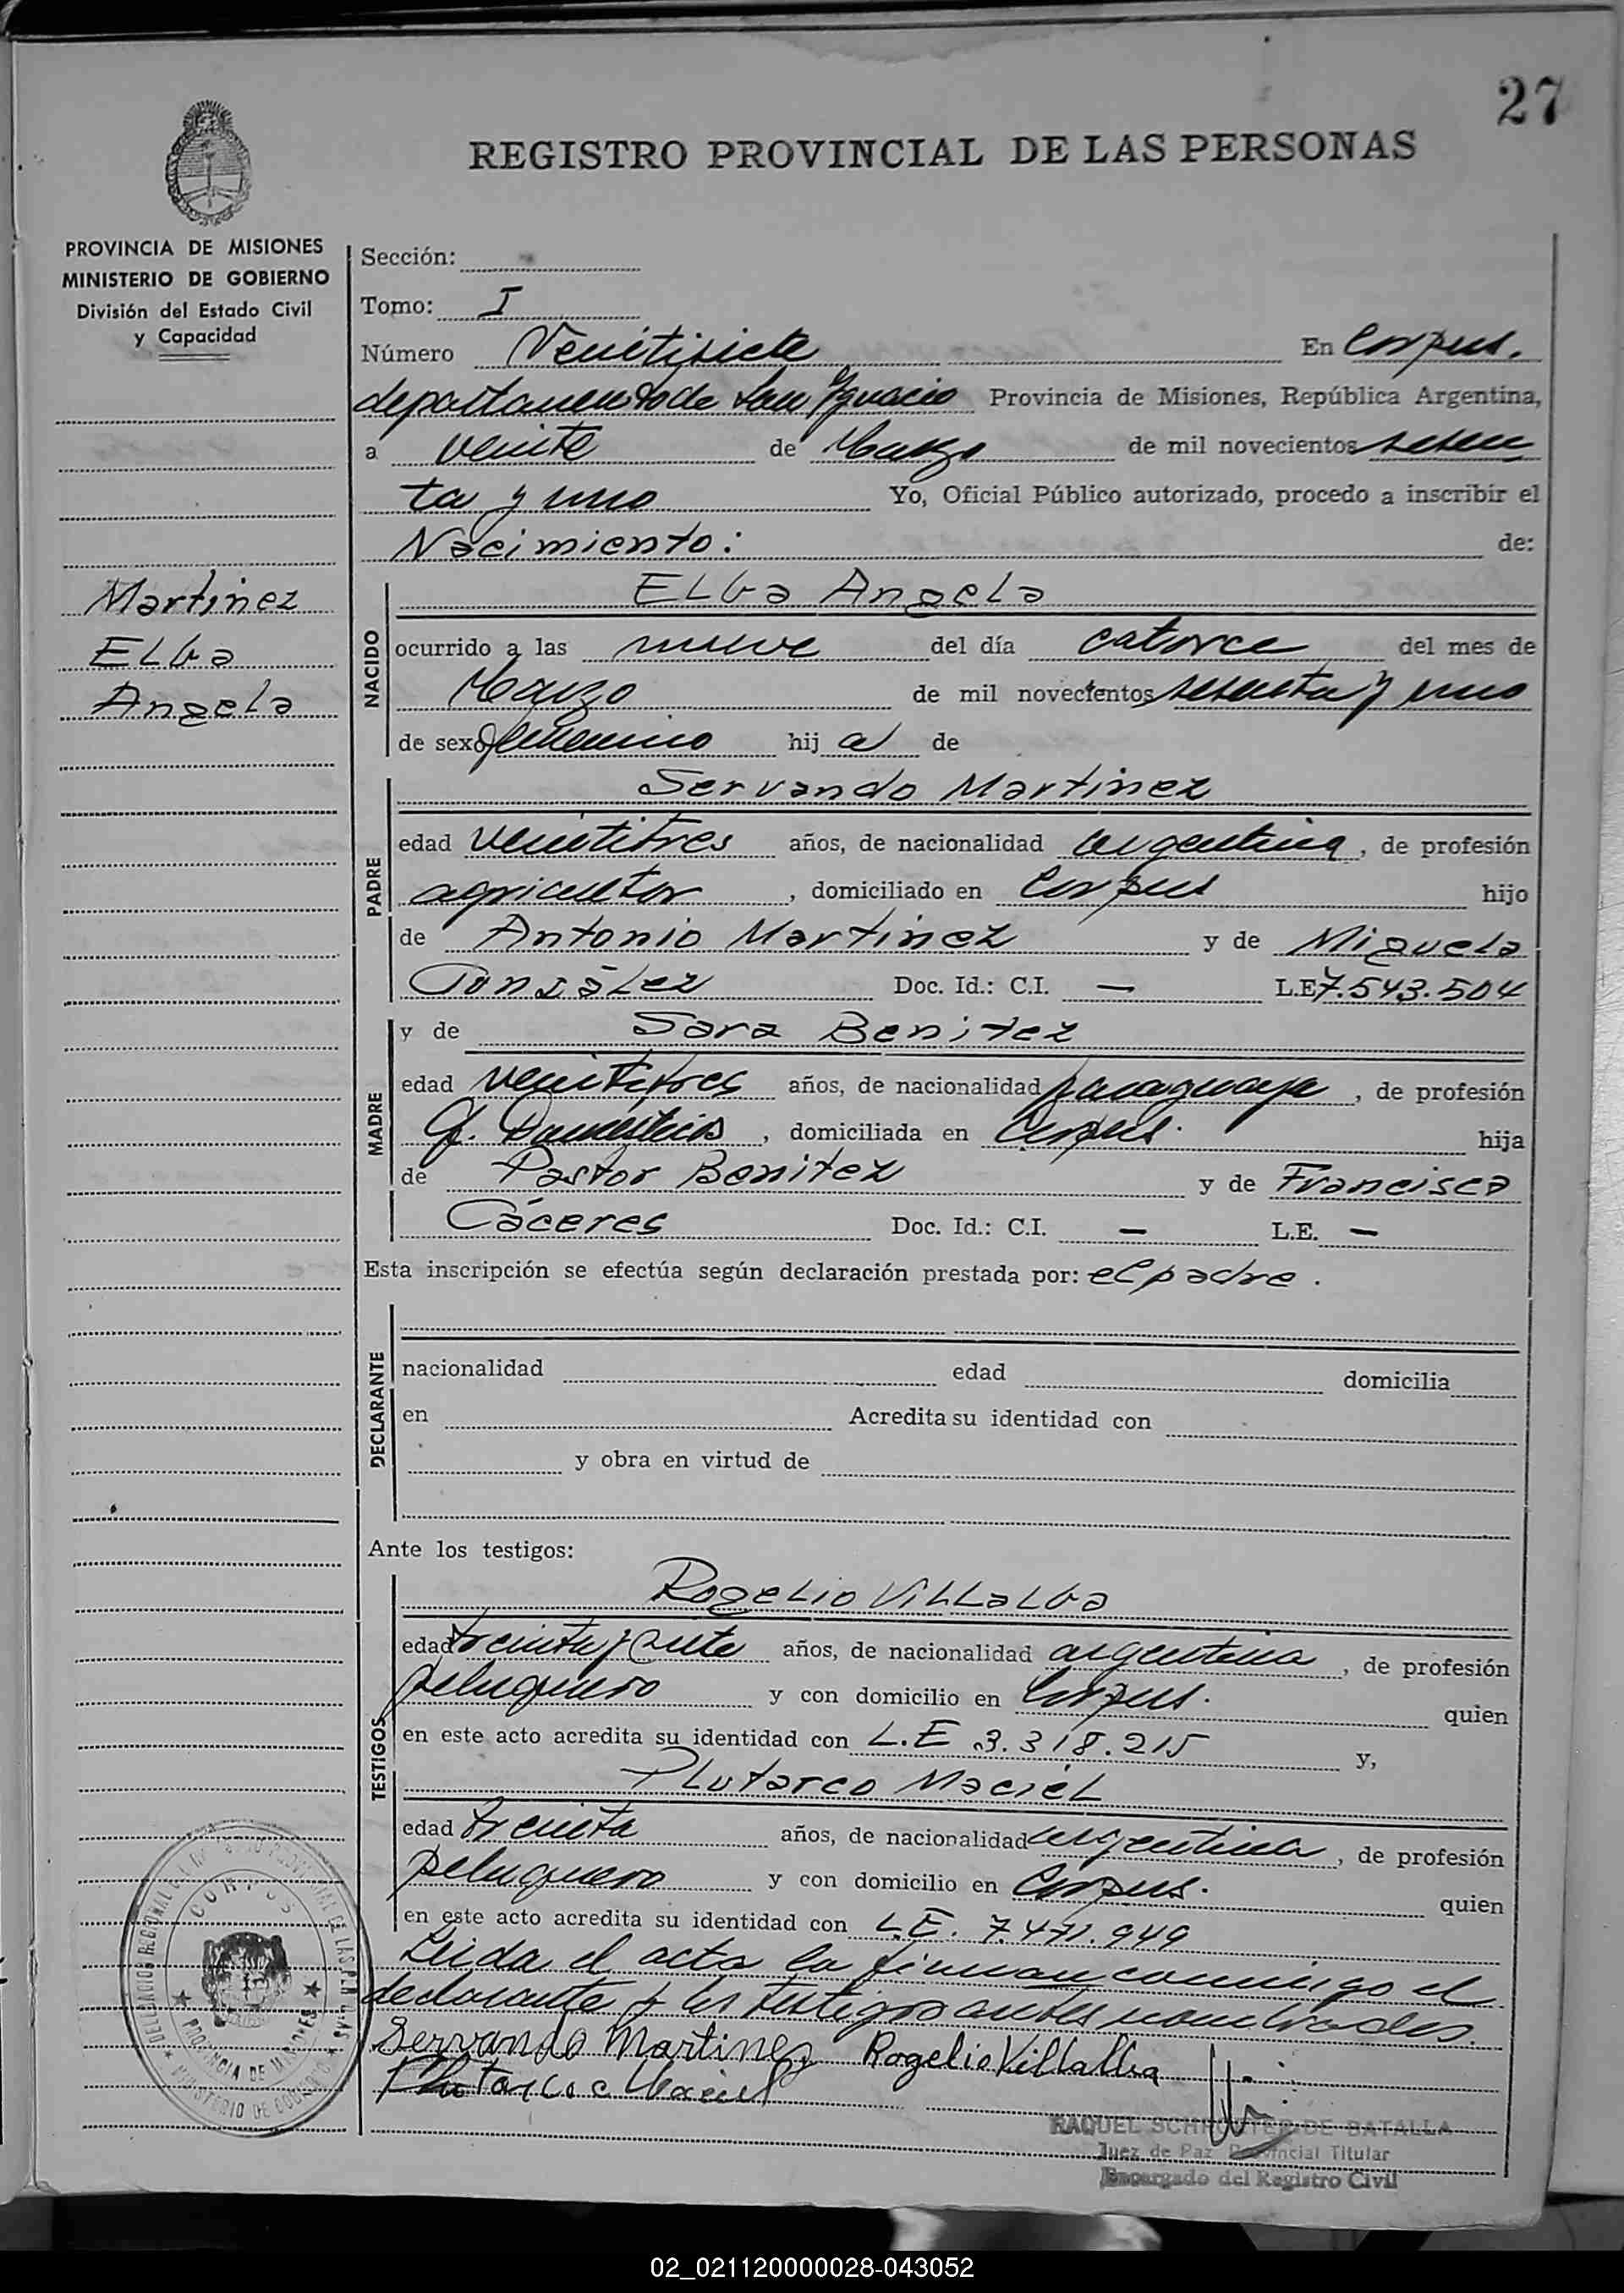 27
REGISTRO PROVINCIAL DE LAS PERSONAS
PROVINCIA DE MISIONES
MINISTERIO DE GOBIERNO
División del Estado Civil
y Capacidad
Martinez
Elba
Angela
Sección:
Tomo: I
Número Veintisiete En Corpus.
departamento de San Ignacio Provincia de Misiones, República Argentina,
a veinte de Marzo de mil novecientos sesen
ta y uno Yo, Oficial Público autorizado, procedo a inscribir el
Nacimiento: de:
NACIDO
Elba Angela
ocurrido a las nueve del día catorce del mes de
Marzo de mil novecientos sesenta y uno
de sexo femenino hij a de
PADRE
Servando Martinez
edad veintitres años, de nacionalidad argentina, de profesión
agricultor, domiciliado en Corpus hijo
de Antonio Martinez y de Miguela
Gonzàlez Doc. Id.: C.I. — L.E 7.543.504
MADRE
y de Sara Benitez
edad veintitres años, de nacionalidad paraguaya, de profesión
Q. Domesticos, domiciliada en Corpus. hija
de Pastor Benitez y de Francisca
Càceres Doc. Id.: C.I. — L.E. —
Esta inscripción se efectúa según declaración prestada por: el padre.
DECLARANTE
nacionalidad edad domicilia
en Acredita su identidad con
y obra en virtud de
Ante los testigos:
TESTIGOS
Rogelio Villalba
edad treinta y años, de nacionalidad argentina, de profesión
peluquero y con domicilio en Corpus. quien
en este acto acredita su identidad con L.E 3.318.215 y,
Plutarco Maciel
edad treinta años, de nacionalidad argentina, de profesión
peluquero y con domicilio en Corpus. quien
en este acto acredita su identidad con L.E. 7.471.949
Leida el acta la firman conmigo el
declarante y los testigos antes nombrados.
Servando Martinez Rogelio Villalba
Plutarco Maciel
RAQUEL DE BATALLA
Juez de Paz Provincial Titular
Encargado del Registro Civil
CORPUS
PROVINCIA DE MISIONES
MINISTERIO DE GOBIERNO
02_021120000028-043052